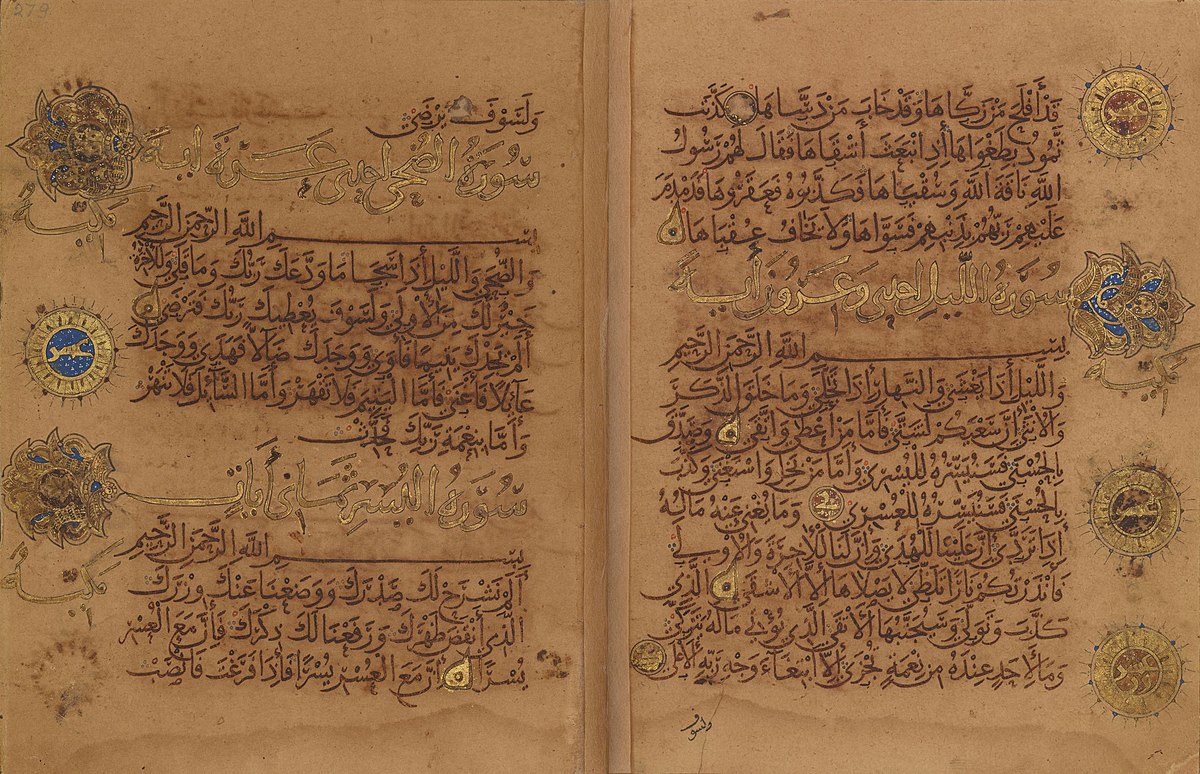 قَدْ أَفْلَحَ مَنْ زَكَّاهَا وَقَدْ خَابَ مَنْ دَسَّاهَا كَذَّبَتْ
ثَمُودُ بِطَغْوَاهَا إِذِ انْبَعَثَ أَشْقَاهَا فَقَالَ لَهُمْ رَسُولُ
اللَّهِ نَاقَةَ اللَّهِ وَسُقْيَاهَا فَكَذَّبُوهُ فَعَقَرُوهَا فَدَمْدَمَ
عَلَيْهِمْ رَبُّهُمْ بِذَنْبِهِمْ فَسَوَّاهَا وَلَا يَخَافُ عُقْبَاهَا
سُورَةُ اللَّيْلِ احدى وعشرون آية
مكية
بِسْمِ اللَّهِ الرَّحْمَنِ الرَّحِيمِ
وَاللَّيْلِ إِذَا يَغْشَى وَالنَّهَارِ إِذَا تَجَلَّى وَمَا خَلَقَ الذَّكَرَ
وَالْأُنْثَى إِنَّ سَعْيَكُمْ لَشَتَّى فَأَمَّا مَنْ أَعْطَى وَاتَّقَى وَصَدَّقَ
بِالْحُسْنَى فَسَنُيَسِّرُهُ لِلْيُسْرَى وَأَمَّا مَنْ بَخِلَ وَاسْتَغْنَى وَكَذَّبَ
بِالْحُسْنَى فَسَنُيَسِّرُهُ لِلْعُسْرَى وَمَا يُغْنِي عَنْهُ مَالُهُ
إِذَا تَرَدَّى إِنَّ عَلَيْنَا لَلْهُدَى وَإِنَّ لَنَا لَلْآخِرَةَ وَالْأُولَى
فَأَنْذَرْتُكُمْ نَارًا تَلَظَّى لَا يَصْلَاهَا إِلَّا الْأَشْقَى الَّذِي
كَذَّبَ وَتَوَلَّى وَسَيُجَنَّبُهَا الْأَتْقَى الَّذِي يُؤْتِي مَالَهُ يَتَزَكَّى
وَمَا لِأَحَدٍ عِنْدَهُ مِنْ نِعْمَةٍ تُجْزَى إِلَّا ابْتِغَاءَ وَجْهِ رَبِّهِ الْأَعْلَى
ولسوف
279
وَلَسَوْفَ يَرْضَى
سُورَةُ الضُّحَى احدى عشرة آية
مكية
بِسْمِ اللَّهِ الرَّحْمَنِ الرَّحِيمِ
وَالضُّحَى وَاللَّيْلِ إِذَا سَجَى مَا وَدَّعَكَ رَبُّكَ وَمَا قَلَى وَلَلْآخِرَةُ
خَيْرٌ لَكَ مِنَ الْأُولَى وَلَسَوْفَ يُعْطِيكَ رَبُّكَ فَتَرْضَى
أَلَمْ يَجِدْكَ يَتِيمًا فَآوَى وَوَجَدَكَ ضَالًّا فَهَدَى وَوَجَدَكَ
عَائِلًا فَأَغْنَى فَأَمَّا الْيَتِيمَ فَلَا تَقْهَرْ وَأَمَّا السَّائِلَ فَلَا تَنْهَرْ
وَأَمَّا بِنِعْمَةِ رَبِّكَ فَحَدِّثْ
عشر
سُورَةُ اليسر ثماني آيات
مكية
بِسْمِ اللَّهِ الرَّحْمَنِ الرَّحِيمِ
أَلَمْ نَشْرَحْ لَكَ صَدْرَكَ وَوَضَعْنَا عَنْكَ وِزْرَكَ
الَّذِي أَنْقَضَ ظَهْرَكَ وَرَفَعْنَا لَكَ ذِكْرَكَ فَإِنَّ مَعَ الْعُسْرِ
يُسْرًا إِنَّ مَعَ الْعُسْرِ يُسْرًا فَإِذَا فَرَغْتَ فَانْصَبْ